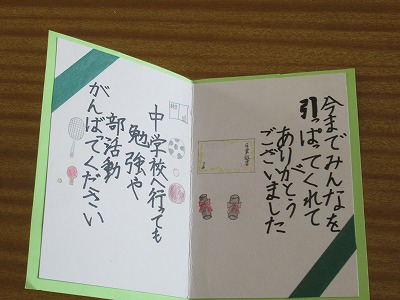 今までみんなを
引っぱってくれて
ありがとう
ございました
中学校へ行っても
勉強や
部活動
がんばってください